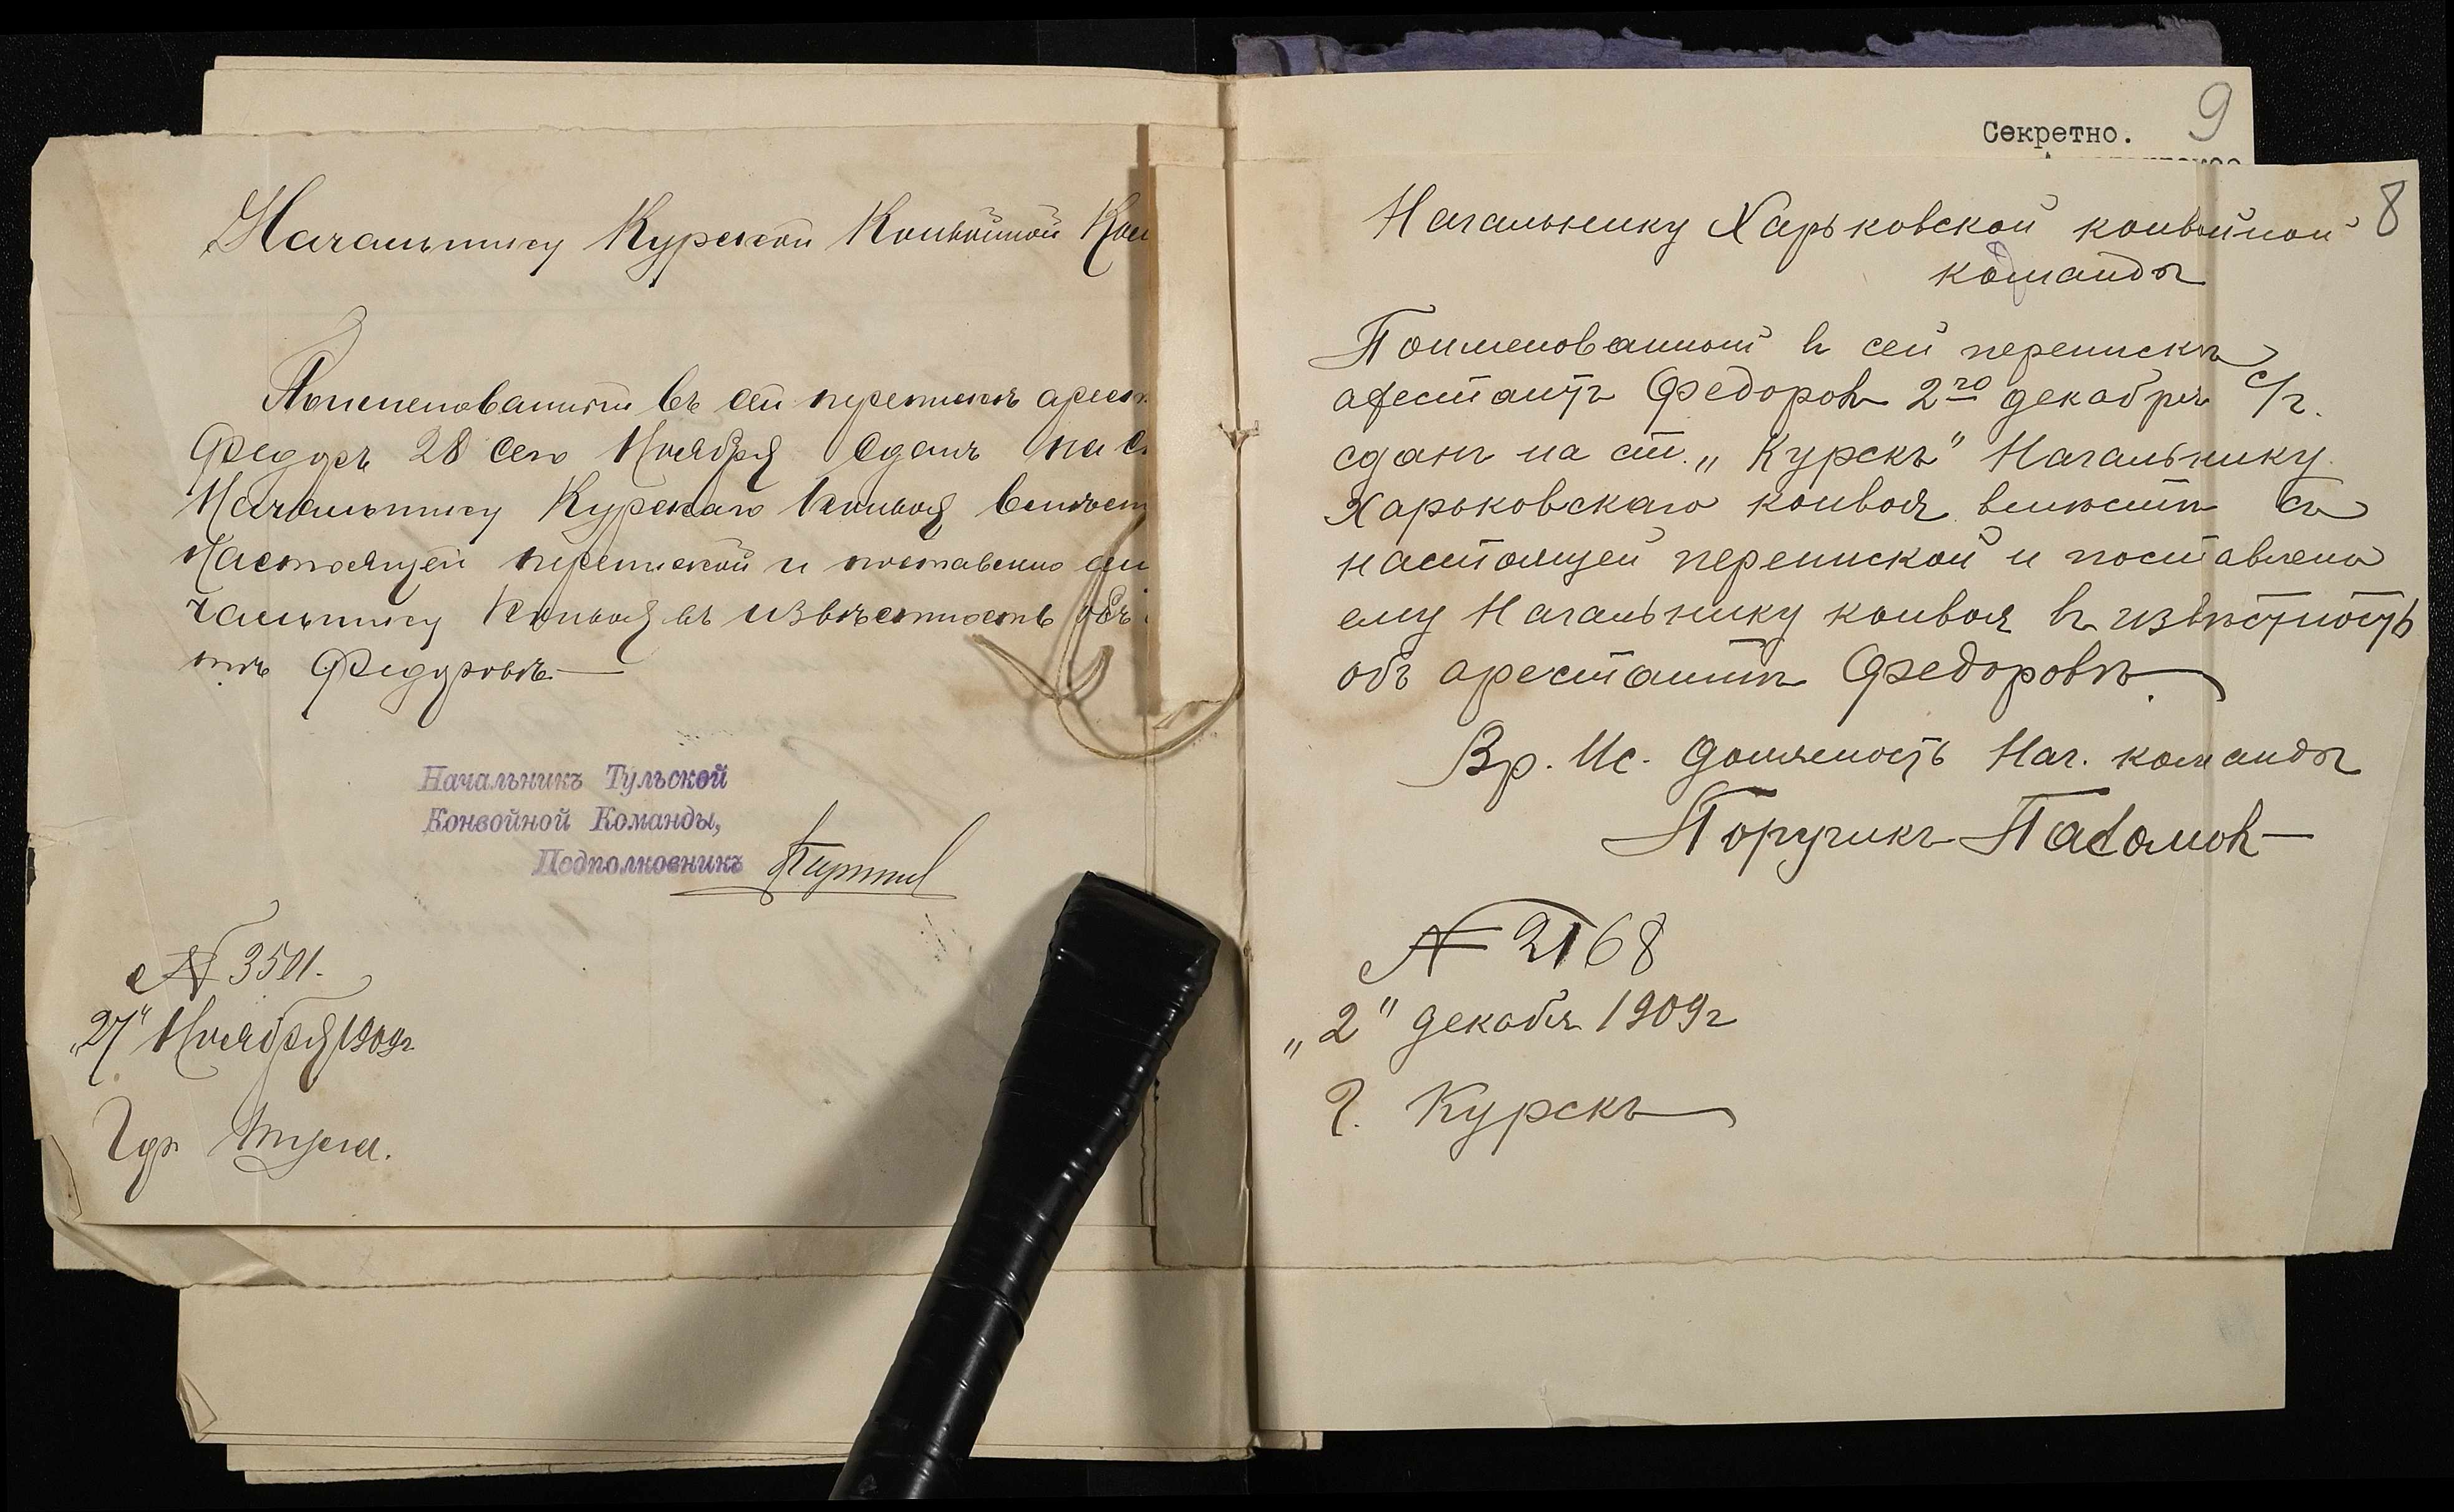 Начальнику Курской Конвойной Ком
Поименованный въ сей перепискѣ арест
Федоръ 28 сего Ноября сданъ на с
Начальнику Курскаго Конвоя вмѣст
настоящей перепиской и поставлено ему
чальнику Конвоя въ извѣстность объ
тѣ Федоровѣ
Начальникъ Тульской
Конвойной Команды,
Подполковникъ
№ 3501.
„27" Ноября 1909г.
Гор. Тула.
Секретно. 9
8
Начальнику Харьковской конвойной
команды
Поименованный въ сей перепискѣ
арестантъ Федоровъ 2го декабря с/г.
сданъ на ст. „Курскъ" Начальнику
Харьковскаго конвоя вмѣстѣ съ
настоящей перепиской и поставлено
ему Начальнику конвоя въ извѣстность
объ арестантѣ Федоровѣ.
Вр. Ис. должность Нач. команды
Поручикъ
№ 2168
„2" декабря 1909г
г. Курскъ